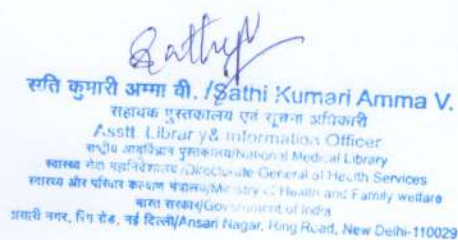 Sathy
सति कुमारी अम्मा वी. /Sathi Kumari Amma V.
सहायक पुस्तकालय एवं सूचना अधिकारी
Asstt. Library & Information Officer
राष्ट्रीय आयुर्विज्ञान पुस्तकालय/National Medical Library
स्वास्थ्य सेवा महानिदेशालय/Directorate General of Health Services
स्वास्थ्य और परिवार कल्याण मंत्रालय/Ministry of Health and Family welfare
भारत सरकार/Government of India
अंसारी नगर, रिंग रोड, नई दिल्ली/Ansari Nagar, Ring Road, New Delhi-110029